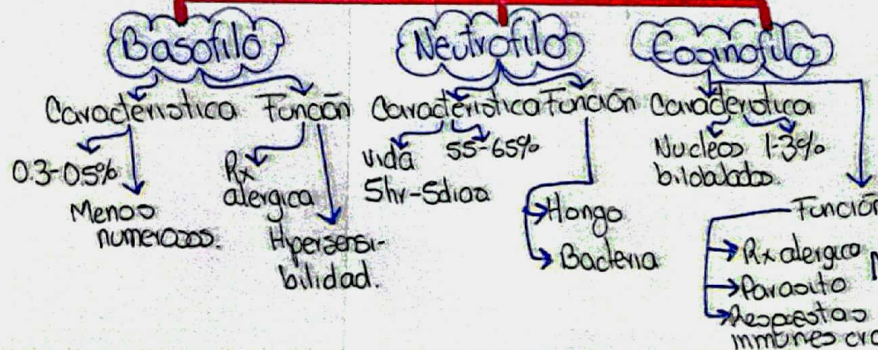 Basofilo
Caracteristica Función
0.3-0.5%
Menos
numerozos.
Rx
alergica
Hipersensi-
bilidad.
Neutrofilo
Caracteristica Función
vida
5hr-5dias
55-65%
Hongo
Bacteria
Eosinofilo
Caracteristica
Nucleos
bilobulados
1-3%
Función
Rx alergico
Parasito
Respuestas
immunes